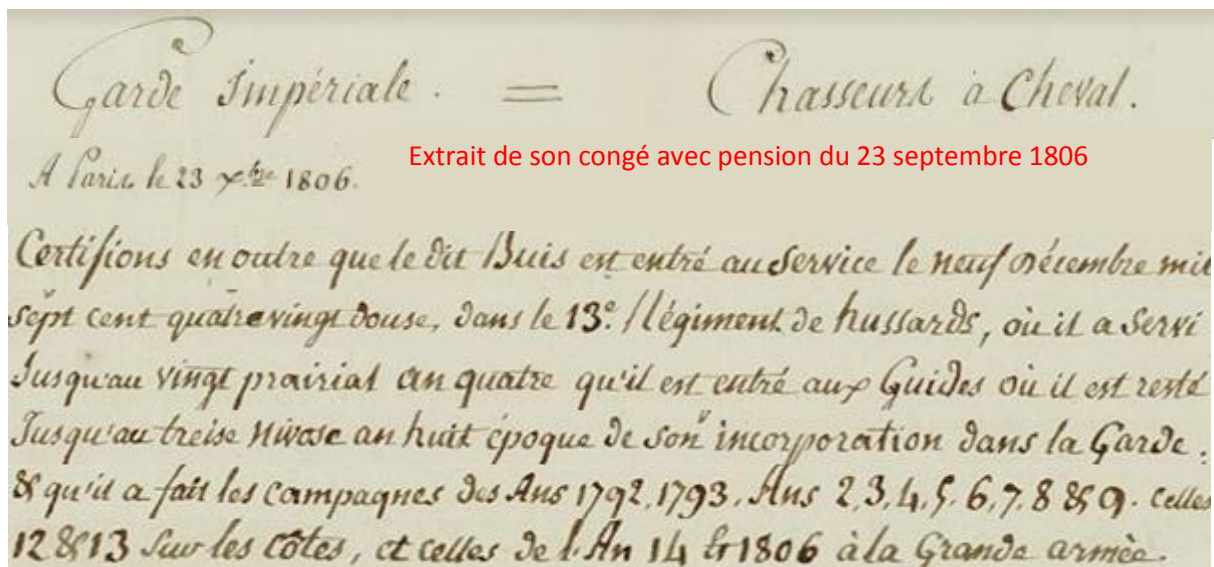 Garde Impériale. = Chasseurs à Cheval.
Extrait de son congé avec pension du 23 septembre 1806
A Paris le 23 7bre 1806.
Certifions en outre que le dit Buis est entré au service le neuf décembre mil
sept cent quatrevingt douse, dans le 13e. Régiment de hussards, où il a servi
Jusqu'au vingt prairial an quatre qu'il est entré aux Guides où il est resté
Jusqu'au treise Nivose an huit époque de son incorporation dans la Garde :
& qu'il a fait les campagnes des Ans 1792, 1793, Ans 2, 3, 4, 5, 6, 7, 8 & 9. celles
12 & 13 sur les côtes, et celles de l'An 14 et 1806 à la Grande armée.